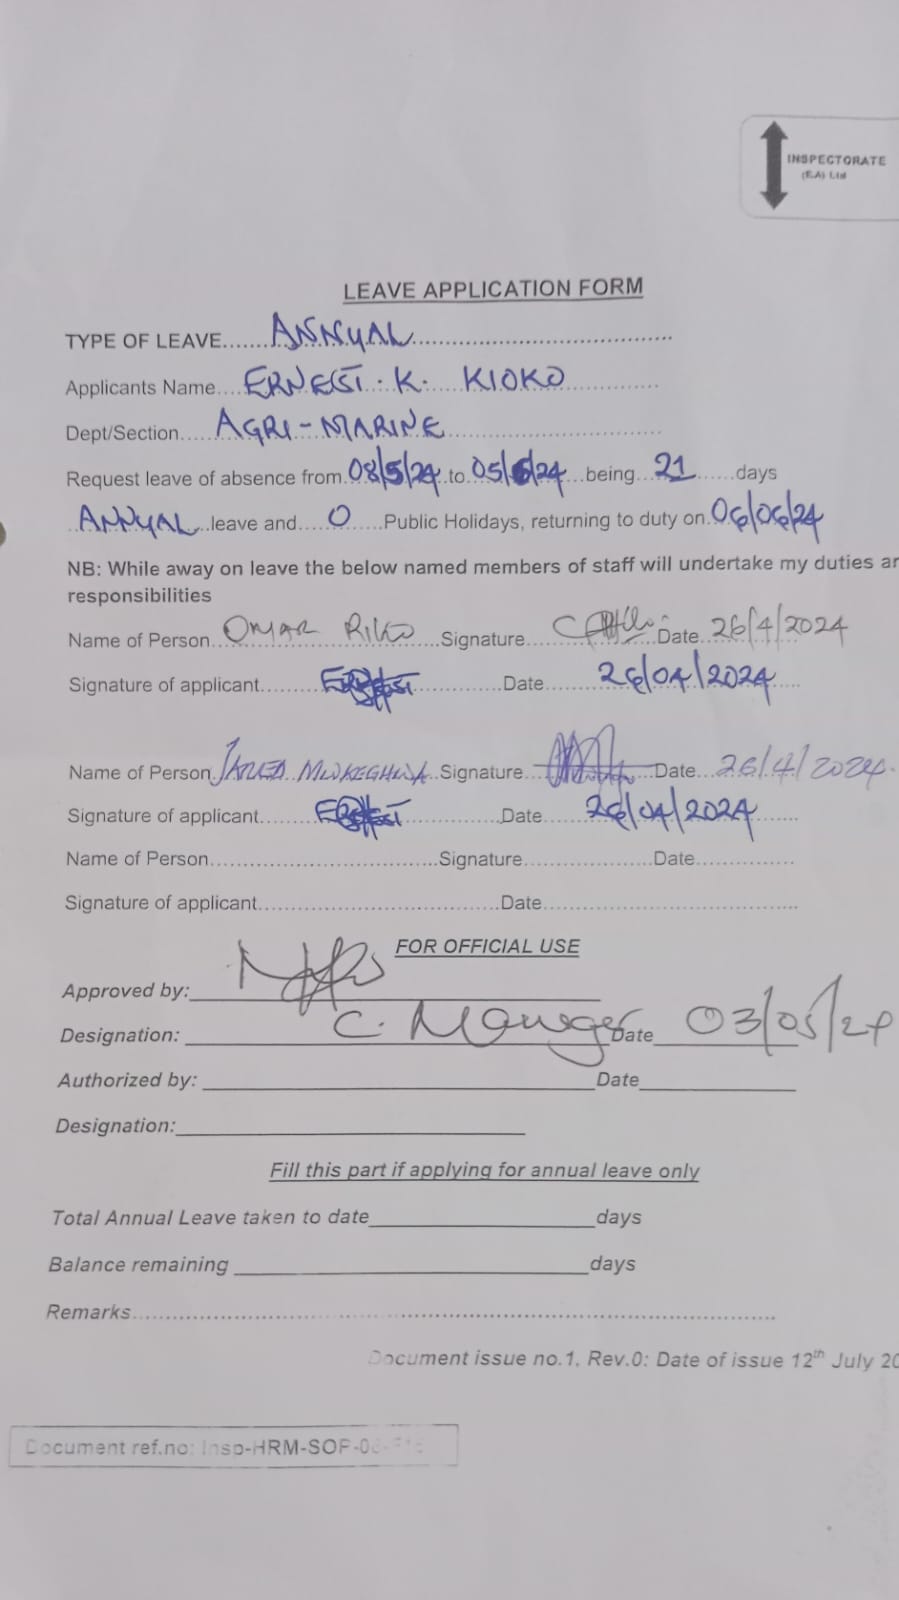 INSPECTORATE
(E.A) Ltd
LEAVE APPLICATION FORM
TYPE OF LEAVE......ANNUAL......
Applicants Name....ERNEST. K. KIOKO......
Dept/Section.....AGRI-MARINE......
Request leave of absence from 08/5/24 to 05/6/24 being 21 days
ANNUAL leave and 0 Public Holidays, returning to duty on 06/06/24
NB: While away on leave the below named members of staff will undertake my duties an
responsibilities
Name of Person OMAR RIKO Signature Date 26/4/2024
Signature of applicant Date 26/04/2024
Name of Person JARED Signature Date 26/4/2024.
Signature of applicant Date 26/04/2024
Name of Person......Signature......Date......
Signature of applicant......Date......
FOR OFFICIAL USE
Approved by:
Designation: C. Manager Date 03/05/24
Authorized by: ______Date______
Designation:______
Fill this part if applying for annual leave only
Total Annual Leave taken to date______days
Balance remaining ______days
Remarks......
Document issue no.1, Rev.0: Date of issue 12th July 20
Document ref.no: Insp-HRM-SOP-